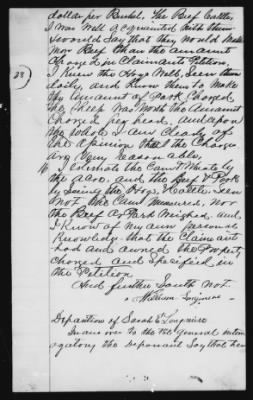 dollar per Bushel. The Beef Cattle
I was well acquainted with them
would say that they would Net
mor Beef than the amount
charged in Claimants Petition
I knew the Hogs Well, Seen them
daily, and know them to Make
the Amount of Pork Charged,
the Sheep was Worth the Amount
Charged per head, and upon
the whole I am clearly of
the opinion that the Charges
are Very reasonable.
28)
I Estimate the Corn & Wheat by
the acre. and the Beef & Pork
by Seeing the Hogs & Cattle. Seen
not the Corn Measured, nor
the Beef or Pork Weighed, and
I Know of my own personal
Knowledge that the Claimant
had and owned the Property
charged and Specified in
the Petition
And further Saith not.
William
Deposition of Sarah E.
In answer to the 1st general inter
ogatory the Deponant Say that her